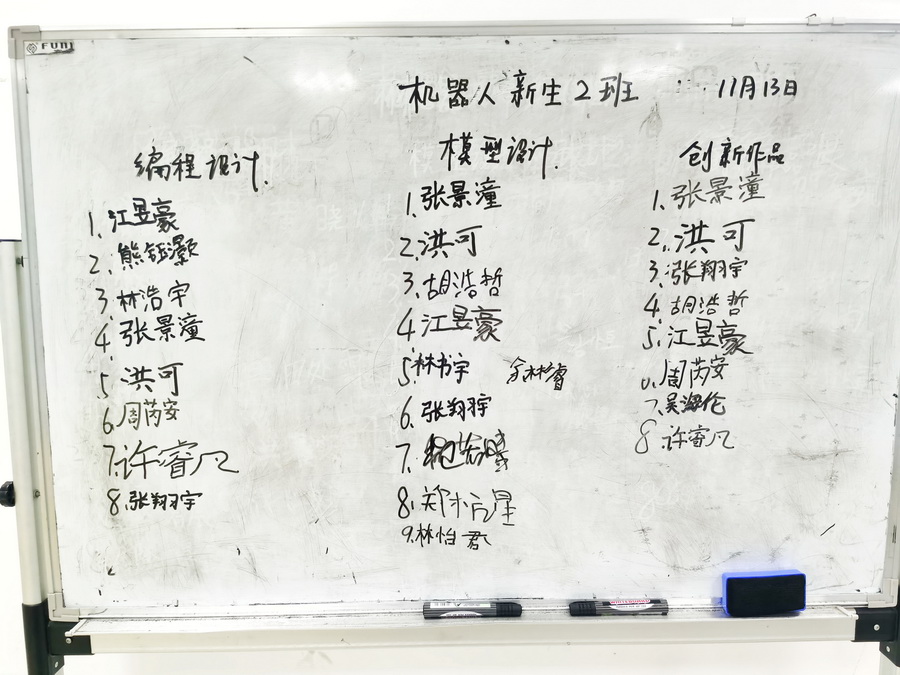 FUNJ
机器人新生2班 11月13日
编程设计.
1.江昱豪
2.熊钰灏
3.林浩宇
4.张景潼
5.洪可
6.周芮安
7.许睿凡
8.张翔宇
模型设计.
1.张景潼
2.洪可
3.胡浩哲
4.江昱豪
5.林书宇 余林睿
6.张翔宇
7.
8.郑 星
9.林怡君
创新作品
1.张景潼
2.洪可
3.张翔宇
4.胡浩哲
5.江昱豪
6.周芮安
7.吴海伦
8.许睿凡